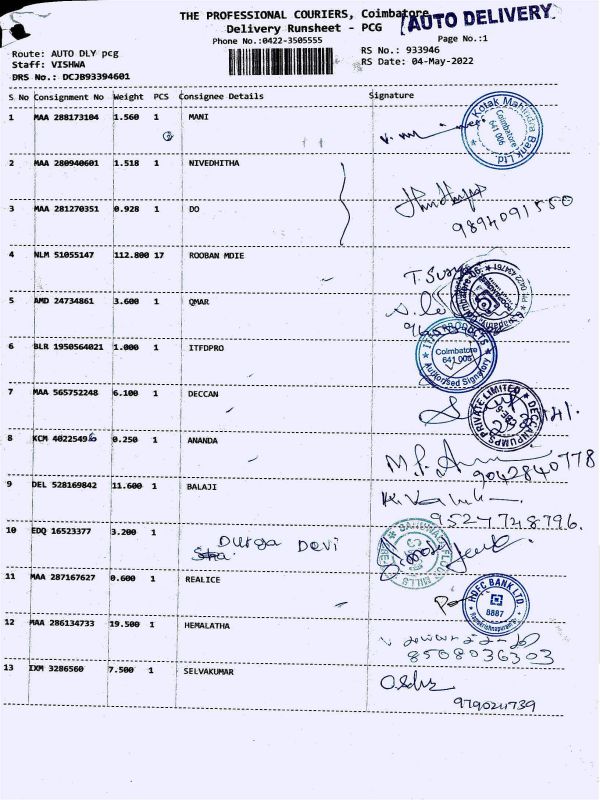 THE PROFESSIONAL COURIERS, Coimbatore
AUTO DELIVERY
Delivery Runsheet - PCG
Page No.:1
Phone No.:0422-3505555
Route: AUTO DLY pcg
RS No.: 933946
Staff: VISHWA
RS Date: 04-May-2022
DRS No.: DCJB93394601
S No Consignment No Weight PCS Consignee Details Signature
1 MAA 288173104 1.560 1 MANI
Kotak Mahindra Bank Ltd.
Coimbatore
641 006
2 MAA 280940601 1.518 1 NIVEDHITHA
3 MAA 281270351 0.928 1 DO
9894091550
4 NLM 51055147 112.800 17 ROOBAN MDIE
T. Surya
5 AMD 24734861 3.600 1 QMAR
6 BLR 1950564021 1.000 1 ITFDPRO
Coimbatore
Authorised Signatory
7 MAA 565752248 6.100 1 DECCAN
DECCANPUMPS PRIVATE LIMITED
8 KCM 40225496 0.250 1 ANANDA
9042840778
9 DEL 528169842 11.600 1 BALAJI
9524748796.
10 EDQ 16523377 3.200 1 Durga Devi
11 MAA 287167627 0.600 1 REALICE
HDFC BANK LTD
8887
12 MAA 286134733 19.500 1 HEMALATHA
8508036303
13 IXM 3286560 7.500 1 SELVAKUMAR